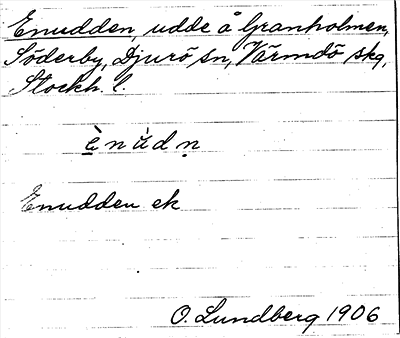 Enudden, udde å Granholmen,
Söderby, Djurö sn, Värmdö skg,
Stockh. l.
è̱nùdṇ
Enudden ek
O. Lundberg 1906